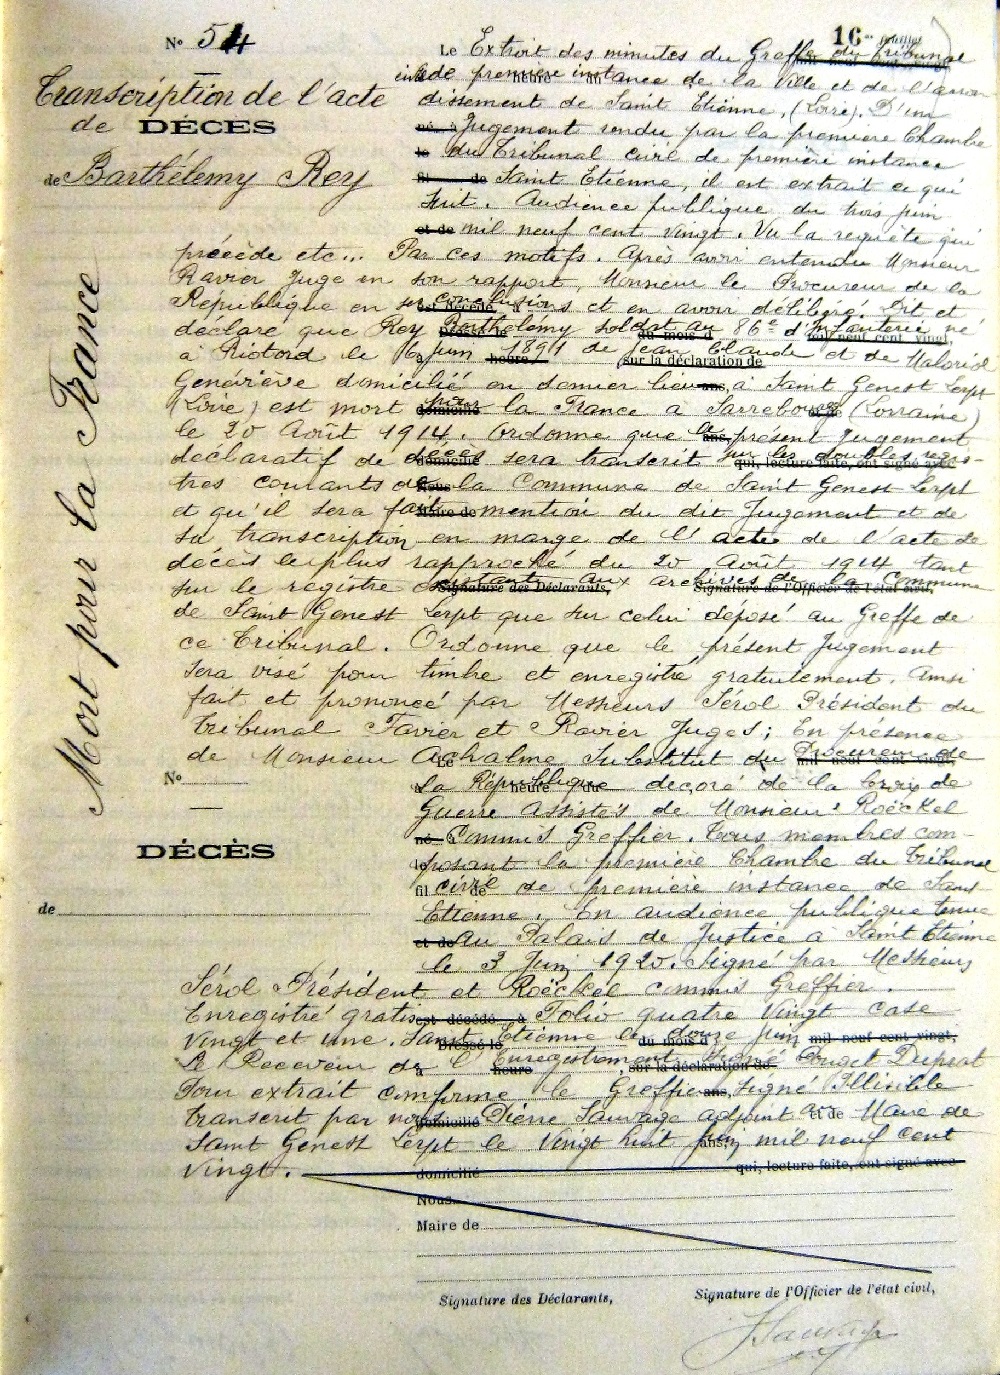 16me feuillet
N° 54
Transcription de l'acte
de DÉCÈS
de Barthélemy Rey
Mort pour la France
Le Extrait des minutes du Greffe du Tribunal
civil de première instance de la Ville et de l'arron
dissement de Saint Etienne, (Loire). D'un
Jugement rendu par la première Chambre
du Tribunal civil de première instance
de Saint Etienne, il est extrait ce qui
suit. Audience publique du trois juin
mil neuf cent vingt. Vu la requête qui
précède etc... Par ces motifs. Après avoir entendu Monsieur
Ravier Juge en son rapport, Monsieur le Procureur de la
République en ses conclusions et en avoir délibéré. Dit et
déclare que Rey Barthélemy soldat au 86e d'Infanterie né
à Riotord le 6 juin 1891 de Jean Claude et de Maloriol
Geneviève domicilié en dernier lieu à Saint Genest Lerpt
(Loire) est mort pour la France à Sarrebourg (Lorraine)
le 20 Août 1914. Ordonne que le présent Jugement
déclaratif de décès sera transcrit sur les doubles regis-
tres courants de la Commune de Saint Genest Lerpt
et qu'il sera fait mention du dit Jugement et de
sa transcription en marge de l'acte de l'acte de
décès le plus rapproché du 20 Août 1914 tant
sur le registre existant aux archives de la Commune
Signature des Déclarants, Signature de l'Officier de l'état civil,
de Saint Genest Lerpt que sur celui déposé au Greffe de
ce Tribunal. Ordonne que le présent Jugement
sera visé pour timbre et enregistré gratuitement. Ainsi
fait et prononcé par Messieurs Sérol Président du
Tribunal Favier et Ravier Juges; En présence
de Monsieur Achalme Substitut du Procureur de
N°
la République décoré de la Croix de
Guerre Assistés de Monsieur Roëckel
Commis Greffier. Tous membres com-
DÉCÈS
posant la première Chambre du Tribunal
civil de première instance de Saint
de
Etienne. En audience publique tenue
au Palais de Justice à Saint Etienne
le 3 Juin 1920. Signé par Messieurs
Sérol Président et Roëckel commis Greffier.
Enregistré gratis Folio quatre vingt case
vingt et une. Saint Etienne le douze juin
Le Receveur de l'Enregistrement Signé Duprat
Pour extrait conforme le Greffier, signé Illisible
Transcrit par nous Pierre Sauvage adjoint au Maire de
Saint Genest Lerpt le vingt huit juin mil neuf cent
vingt.
domicilié qui, lecture faite, ont signé avec
Nous
Maire de
Signature des Déclarants, Signature de l'Officier de l'état civil,
Sauvage